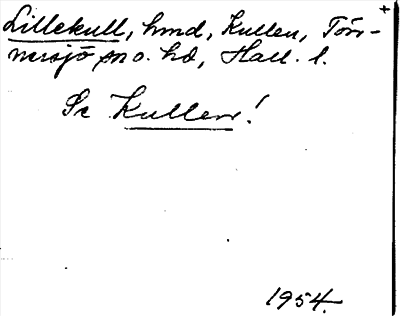 Lillekull, hmd, Kullen, Tön-
nersjö sn o. hd, Hall. l.
Se Kullen!
1954.